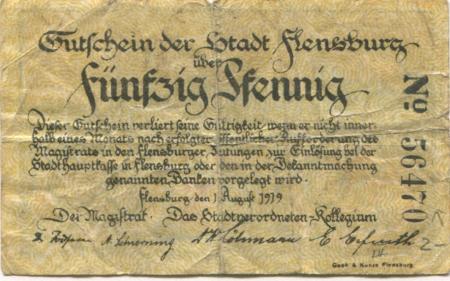 Gutschein der Stadt Flensburg
über
Fünfzig Pfennig
Dieser Gutschein verliert seine Gültigkeit, wenn er nicht inner-
halb eines Monats nach erfolgter öffentlicher Aufforderung des
Magistrats in den Flensburger Zeitungen zur Einlösung bei der
Stadthauptkasse in Flensburg oder den in der Bekanntmachung
genannten Banken vorgelegt wird.
Flensburg, den 1. August 1919
Der Magistrat. Das Stadtverordneten-Kollegium
No 56470
2-
Flensburg